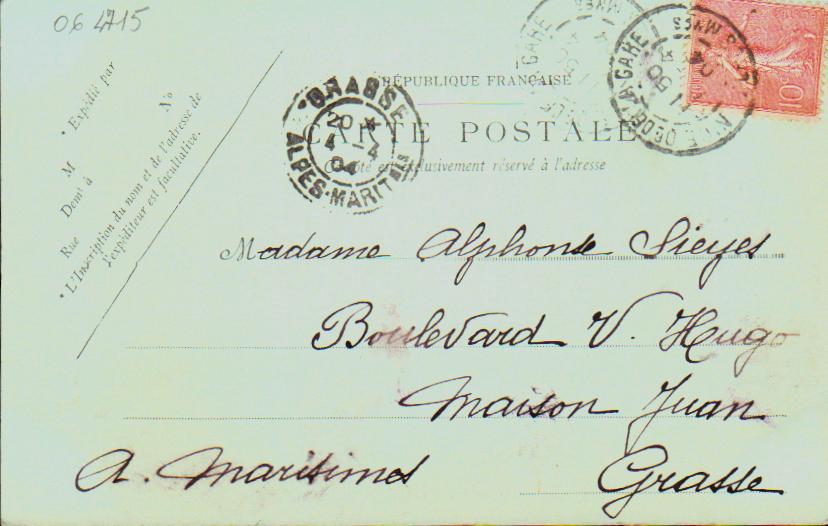 06 4715
RÉPUBLIQUE FRANÇAISE
CARTE POSTALE
Ce côté est exclusivement réservé à l'adresse
* Expédié par
M No
Rue Demt à
* L'Inscription du nom et de l'adresse de
l'expéditeur est facultative.
GRASSE
20 *
4 -4
04
ALPES-MARITMES
GARE
10
Madame Alphonse Sieyes
Boulevard V. Hugo
Maison Juan
A. Maritimes Grasse